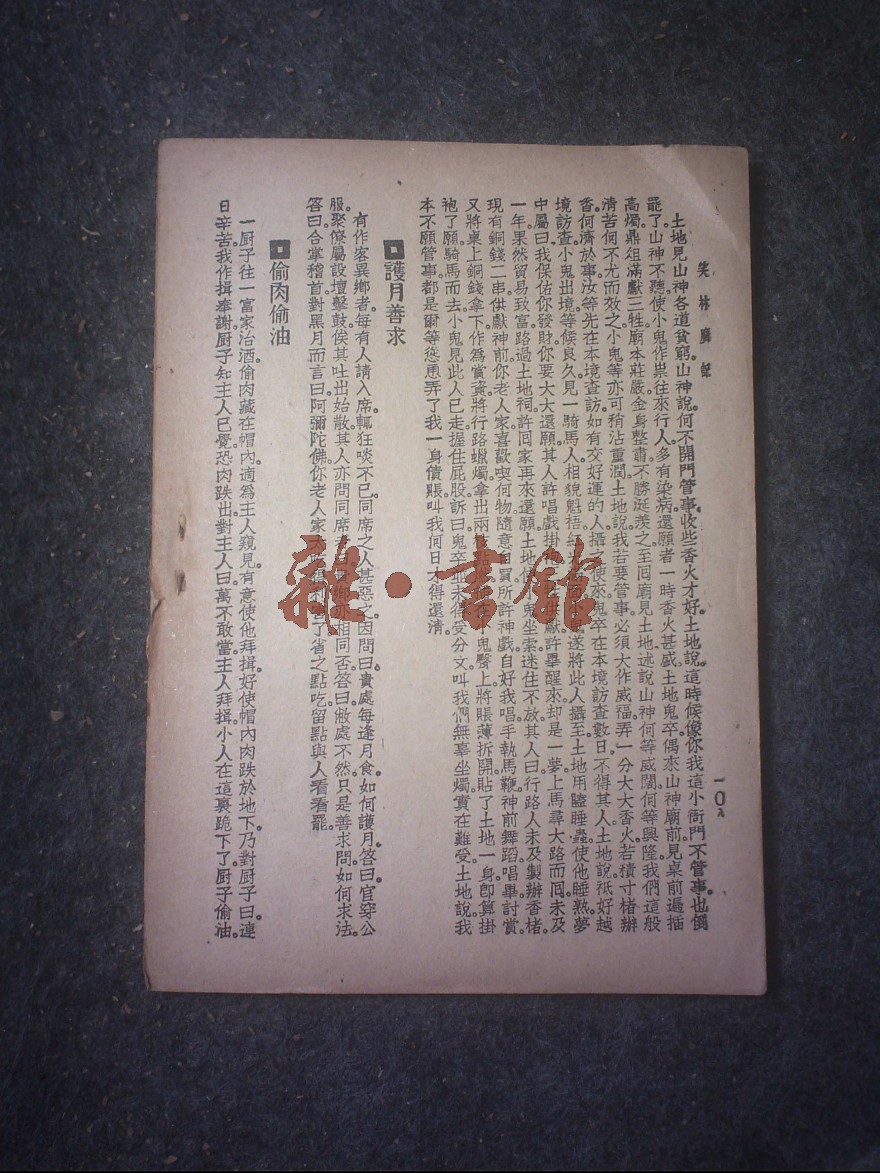 笑林廣記
一０八
土地見山神各道貧窮山神說何不開門管事收些香火才好土地說這時候像你我這小衙門不管事也倒
罷了山神不聽使小鬼作祟往來行人多有染病還願者一時香火甚盛土地鬼卒偶來山神廟前見桌前遍插
高燭鼎俎滿獻三牲廟本莊嚴金身整肅不勝涎羨之至囘廟見土地述說山神何等威闊何等興隆我們這般
清苦何不尤而效之小鬼等亦可稍沾重潤土地說我若要管事必須大作威福弄一分大大香火若積寸楮辦
香何濟於事汝等先在本境查訪如有交好運的人攝之使來鬼卒在本境訪查數日不得其人土地說祗好越
境訪查小鬼出境等候良久見一騎馬人相貌魁梧遂將此人攝至土地用瞌睡蟲使他睡熟夢
中屬曰我保佑你發財你要大大還願其人許唱戲掛供獻許畢醒來却是一夢上馬尋大路而囘未及
一年果然貿易致富路過土地祠許囘家再來還願土地鬼坐索迷住不放其人曰行路人未及製辦香楮
現有銅錢二串供獻神前你老人家喜歡喫何物隨意自買所許神戲自好我唱手執馬鞭神前舞蹈唱畢討賞
又將桌上銅錢拿下作為賞資將行路蠟燭拿出兩小鬼臀上將賬薄拆開貼了土地一身卽算掛
袍了願騎馬而去小鬼見此人已走握住屁股訴曰鬼卒並未得受分文叫我們無辜坐燭實在難受土地說我
本不願管事都是爾等慫恿弄了我一身債賬叫我何日才得還清
護月善求
有作客異鄉者每有人請入席輒狂啖不已同席之人甚惡之因問曰貴處每逢月食如何護月答曰官穿公
服聚僚屬設壇擊鼓俟其吐出始散其人亦問同席亦相同否答曰敝處不然只是善求問如何求法
答曰合掌稽首對黑月而言曰阿彌陀佛你老人家了省之點吃留點與人看看罷
偷肉偷油
一厨子往一富家治酒偷肉藏在帽內適為主人窺見有意使他拜揖好使帽內肉跌於地下乃對厨子曰連
日辛苦我作揖奉謝厨子知主人已覺恐肉跌出對主人曰萬不敢當主人拜揖小人在這裏跪下了厨子偷油
雜·書館